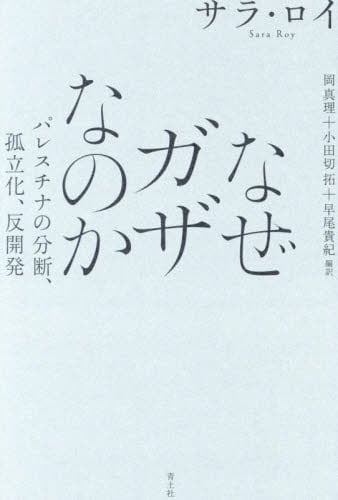 サラ・ロイ
Sara Roy
岡真理+小田切拓+早尾貴紀 編訳
なぜ
ガザ
なのか
パレスチナの分断、
孤立化、反開発
青土社